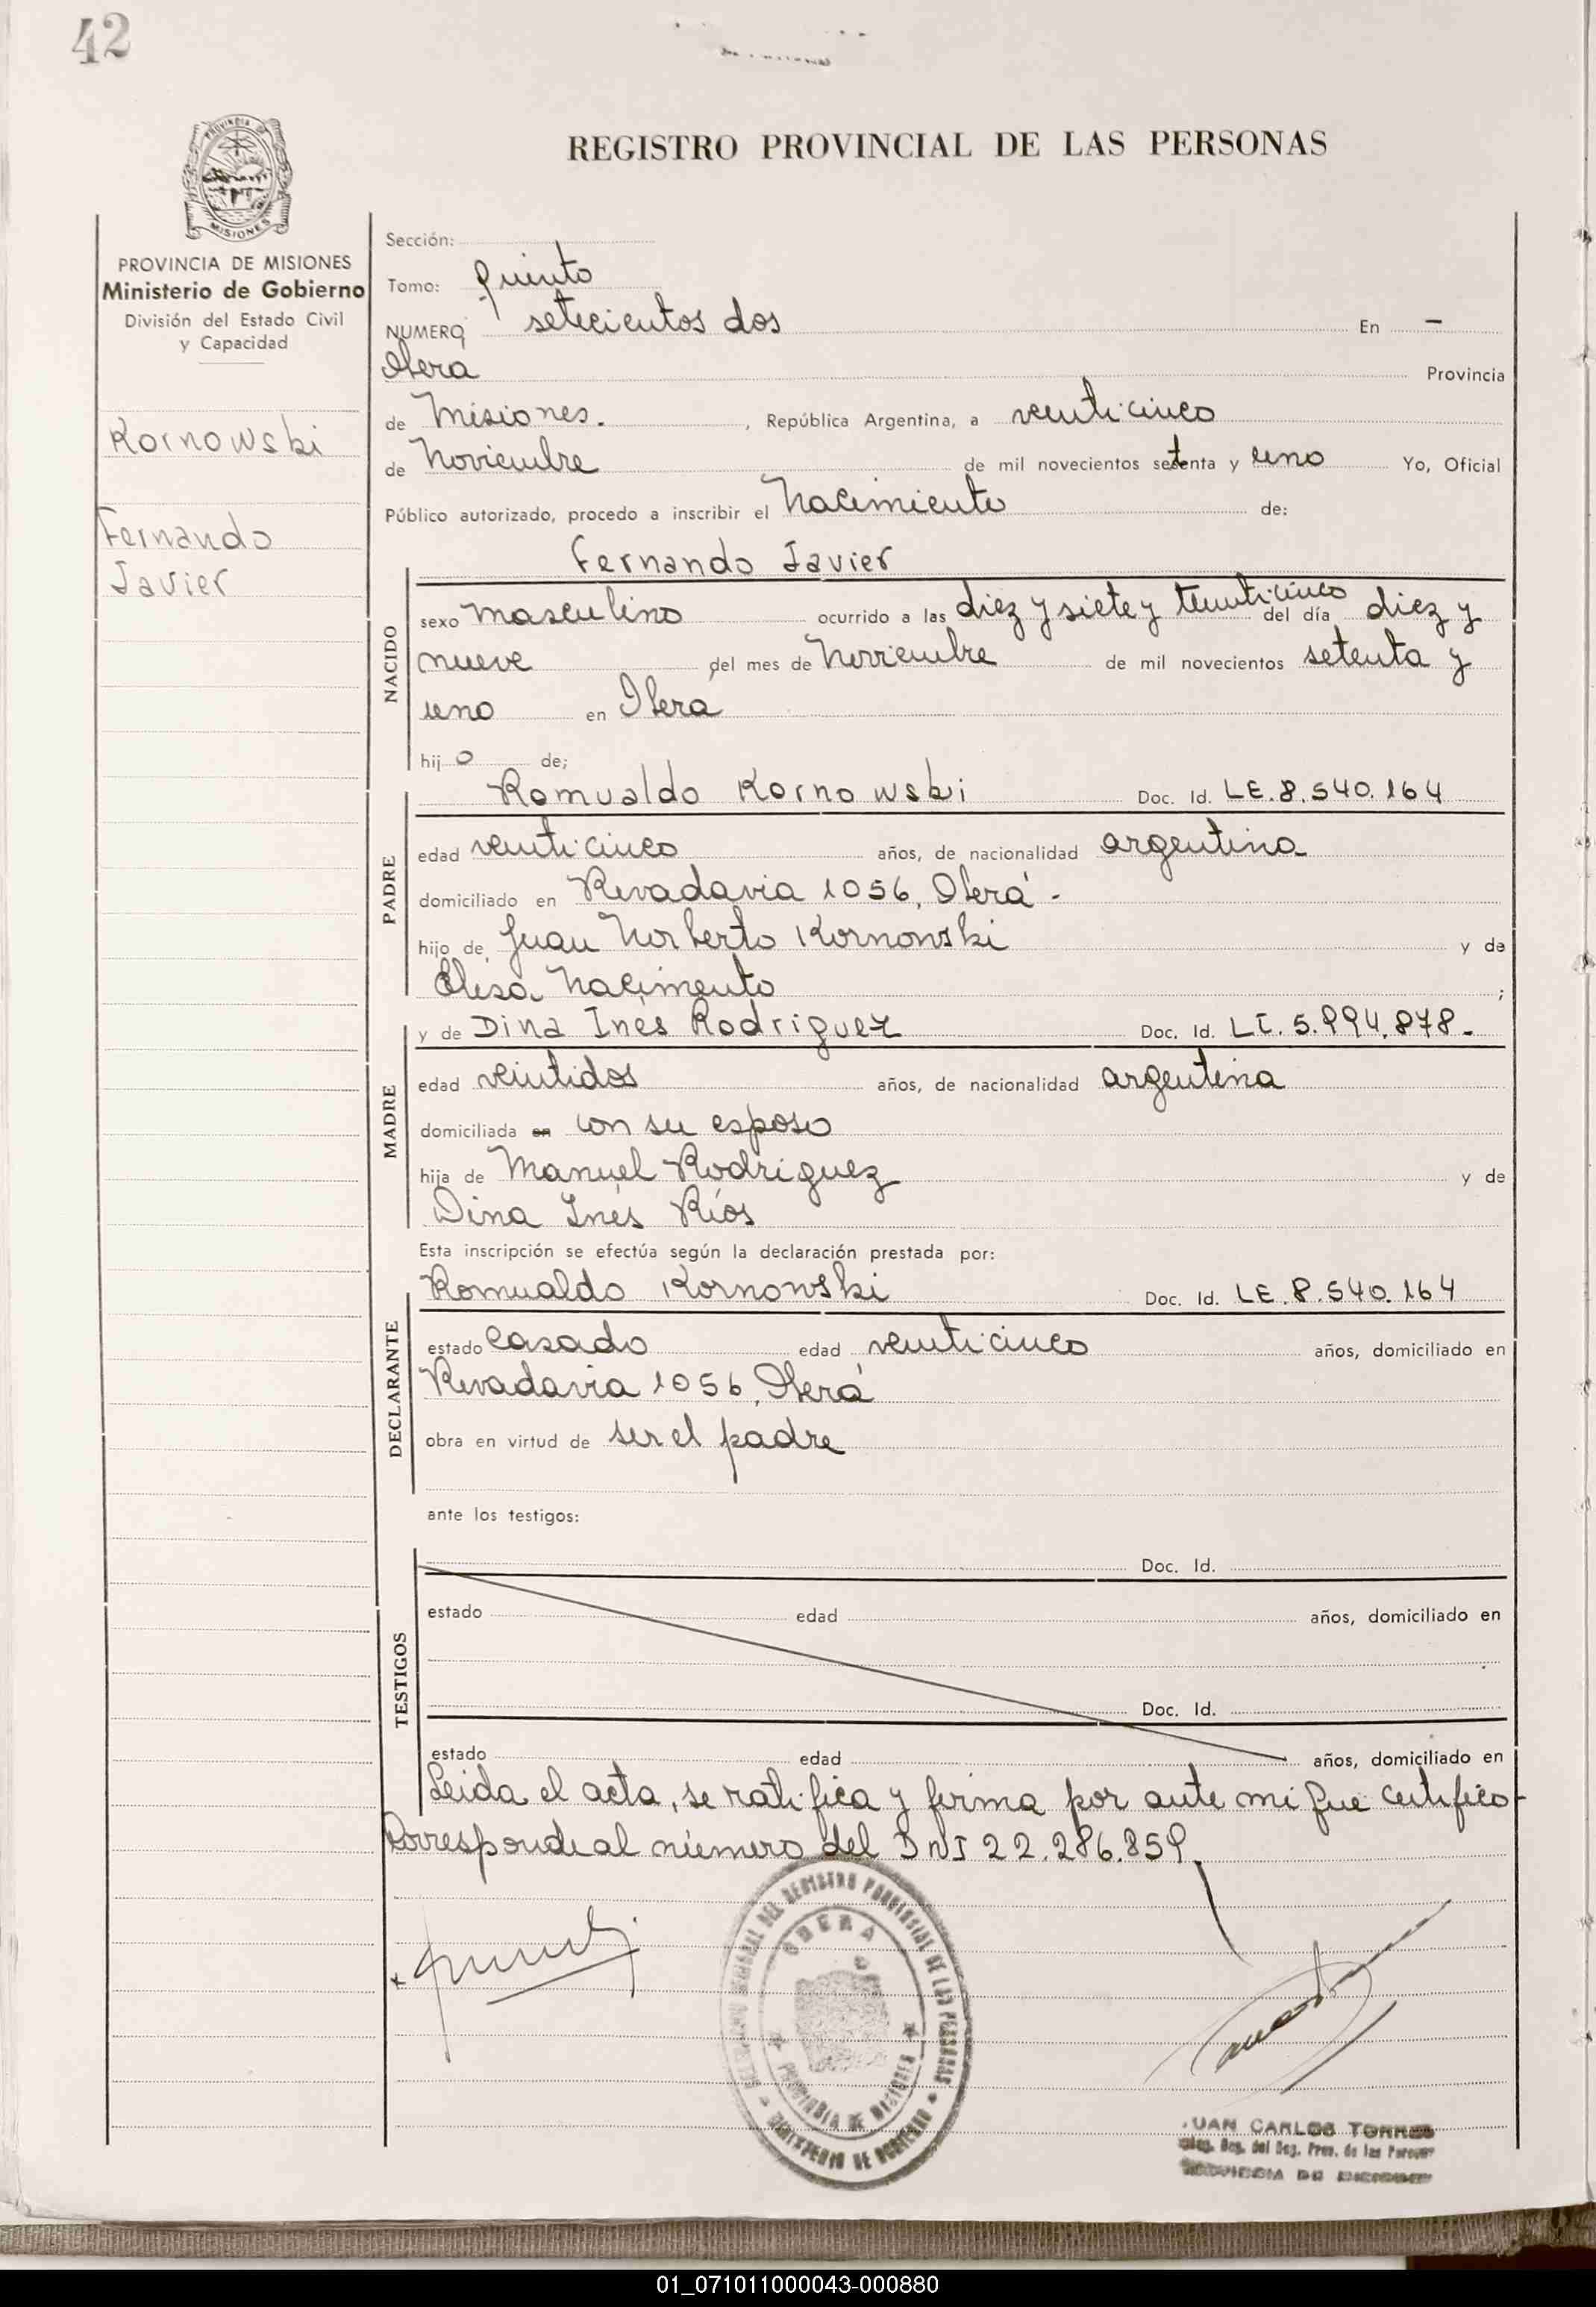 42
REGISTRO PROVINCIAL DE LAS PERSONAS
MISIONES
PROVINCIA DE MISIONES
Ministerio de Gobierno
División del Estado Civil
y Capacidad
Kornowski
Fernando
Javier
Sección:
Tomo: quinto
NUMERO setecientos dos En -
Obera Provincia
de Misiones. , República Argentina, a veinticinco
de Noviembre de mil novecientos setenta y uno Yo, Oficial
Público autorizado, procedo a inscribir el Nacimiento de:
Fernando Javier
NACIDO
sexo masculino ocurrido a las diez y siete y treinticinco del día diez y
nueve del mes de Noviembre de mil novecientos setenta y
uno en Obera
hij o de;
PADRE
Romualdo Kornowski Doc. Id. LE. 8.540.164
edad veinticinco años, de nacionalidad argentina
domiciliado en Rivadavia 1056, Oberá -
hijo de Juan Norberto Kornowski y de
Elisa Nacimento ;
MADRE
y de Dina Ines Rodriguez Doc. Id. 5.994.878-
edad veintidos años, de nacionalidad argentina
domiciliada en con su esposo
hija de Manuel Rodriguez y de
Dina Inés Ríos
Esta inscripción se efectúa según la declaración prestada por:
DECLARANTE
Romualdo Kornowski Doc. Id. LE. 8.540.164
estado casado edad veinticinco años, domiciliado en
Rivadavia 1056, Oberá
obra en virtud de ser el padre
ante los testigos:
TESTIGOS
Doc. Id.
estado edad años, domiciliado en
Doc. Id.
estado edad años, domiciliado en
Leida el acta, se ratifica y firma por ante mi que certifico-
Corresponde al número del DNI 22.286.859.
DEL REGISTRO PROVINCIAL DE LAS PERSONAS
OBERA
PROVINCIA DE MISIONES
MINISTERIO DE GOBIERNO
JUAN CARLOS TORRES
del Reg. Prov. de las Personas
PROVINCIA DE MISIONES
01_071011000043-000880